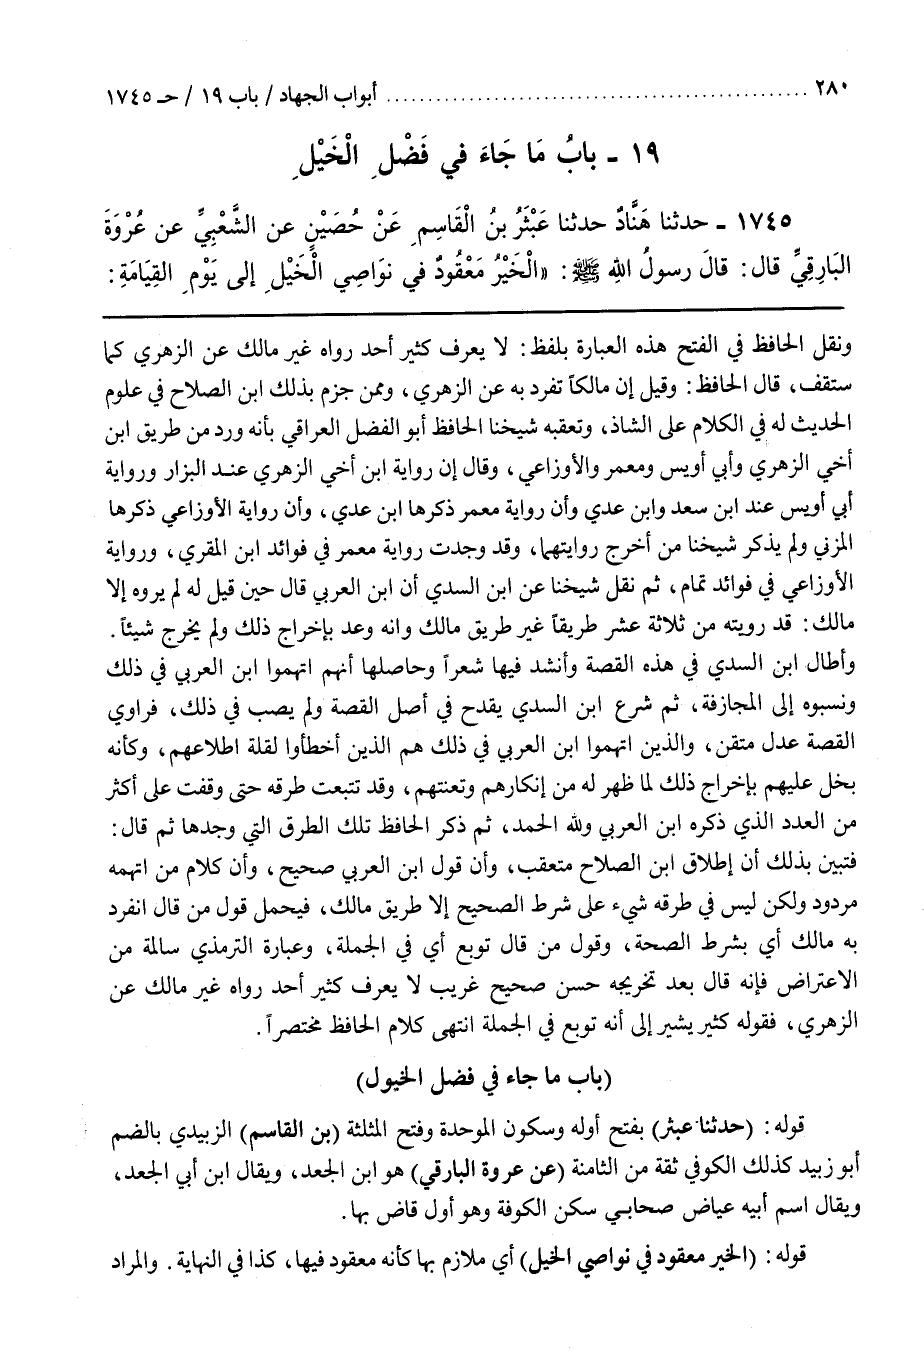 ٢٨٠ ................................................ أبواب الجهاد / باب ١٩ / حـ ١٧٤٥
١٩ ـ بابُ مَا جَاءَ في فَضْلِ الْخَيْلِ
١٧٤٥ ـ حدثنا هَنَّادٌ حدثنا عَبْثَرُ بنُ الْقَاسِمِ عَنْ حُصَيْنٍ عن الشَّعْبِيِّ عن عُرْوَةَ
البَارِقِيِّ قال: قالَ رسولُ اللهِ ﷺ: «الْخَيْرُ مَعْقُودٌ في نوَاصِي الْخَيْلِ إلى يَوْمِ القِيَامَةِ:
ونقل الحافظ في الفتح هذه العبارة بلفظ: لا يعرف كثير أحد رواه غير مالك عن الزهري كما
ستقف، قال الحافظ: وقيل إن مالكاً تفرد به عن الزهري، وممن جزم بذلك ابن الصلاح في علوم
الحديث له في الكلام على الشاذ، وتعقبه شيخنا الحافظ أبو الفضل العراقي بأنه ورد من طريق ابن
أخي الزهري وأبي أويس ومعمر والأوزاعي، وقال إن رواية ابن أخي الزهري عند البزار ورواية
أبي أويس عند ابن سعد وابن عدي وأن رواية معمر ذكرها ابن عدي، وأن رواية الأوزاعي ذكرها
المزني ولم يذكر شيخنا من أخرج روايتهما، وقد وجدت رواية معمر في فوائد ابن المقري، ورواية
الأوزاعي في فوائد تمام، ثم نقل شيخنا عن ابن السدي أن ابن العربي قال حين قيل له لم يروه إلا
مالك: قد رويته من ثلاثة عشر طريقاً غير طريق مالك وانه وعد بإخراج ذلك ولم يخرج شيئاً.
وأطال ابن السدي في هذه القصة وأنشد فيها شعراً وحاصلها أنهم اتهموا ابن العربي في ذلك
ونسبوه إلى المجازفة، ثم شرع ابن السدي يقدح في أصل القصة ولم يصب في ذلك، فراوي
القصة عدل متقن، والذين اتهموا ابن العربي في ذلك هم الذين أخطأوا لقلة اطلاعهم، وكأنه
بخل عليهم بإخراج ذلك لما ظهر له من إنكارهم وتعنتهم، وقد تتبعت طرقه حتى وقفت على أكثر
من العدد الذي ذكره ابن العربي ولله الحمد، ثم ذكر الحافظ تلك الطرق التي وجدها ثم قال:
فتبين بذلك أن إطلاق ابن الصلاح متعقب، وأن قول ابن العربي صحيح، وأن كلام من اتهمه
مردود ولكن ليس في طرقه شيء على شرط الصحيح إلا طريق مالك، فيحمل قول من قال انفرد
به مالك أي بشرط الصحة، وقول من قال توبع أي في الجملة، وعبارة الترمذي سالمة من
الاعتراض فإنه قال بعد تخريجه حسن صحيح غريب لا يعرف كثير أحد رواه غير مالك عن
الزهري، فقوله كثير يشير إلى أنه توبع في الجملة انتهى كلام الحافظ مختصراً.
(باب ما جاء في فضل الخيول)
قوله: (حدثنا عبثر) بفتح أوله وسكون الموحدة وفتح المثلثة (بن القاسم) الزبيدي بالضم
أبو زبيد كذلك الكوفي ثقة من الثامنة (عن عروة البارقي) هو ابن الجعد، ويقال ابن أبي الجعد،
ويقال اسم أبيه عياض صحابي سكن الكوفة وهو أول قاض بها.
قوله: (الخير معقود في نواصي الخيل) أي ملازم بها كأنه معقود فيها، كذا في النهاية. والمراد